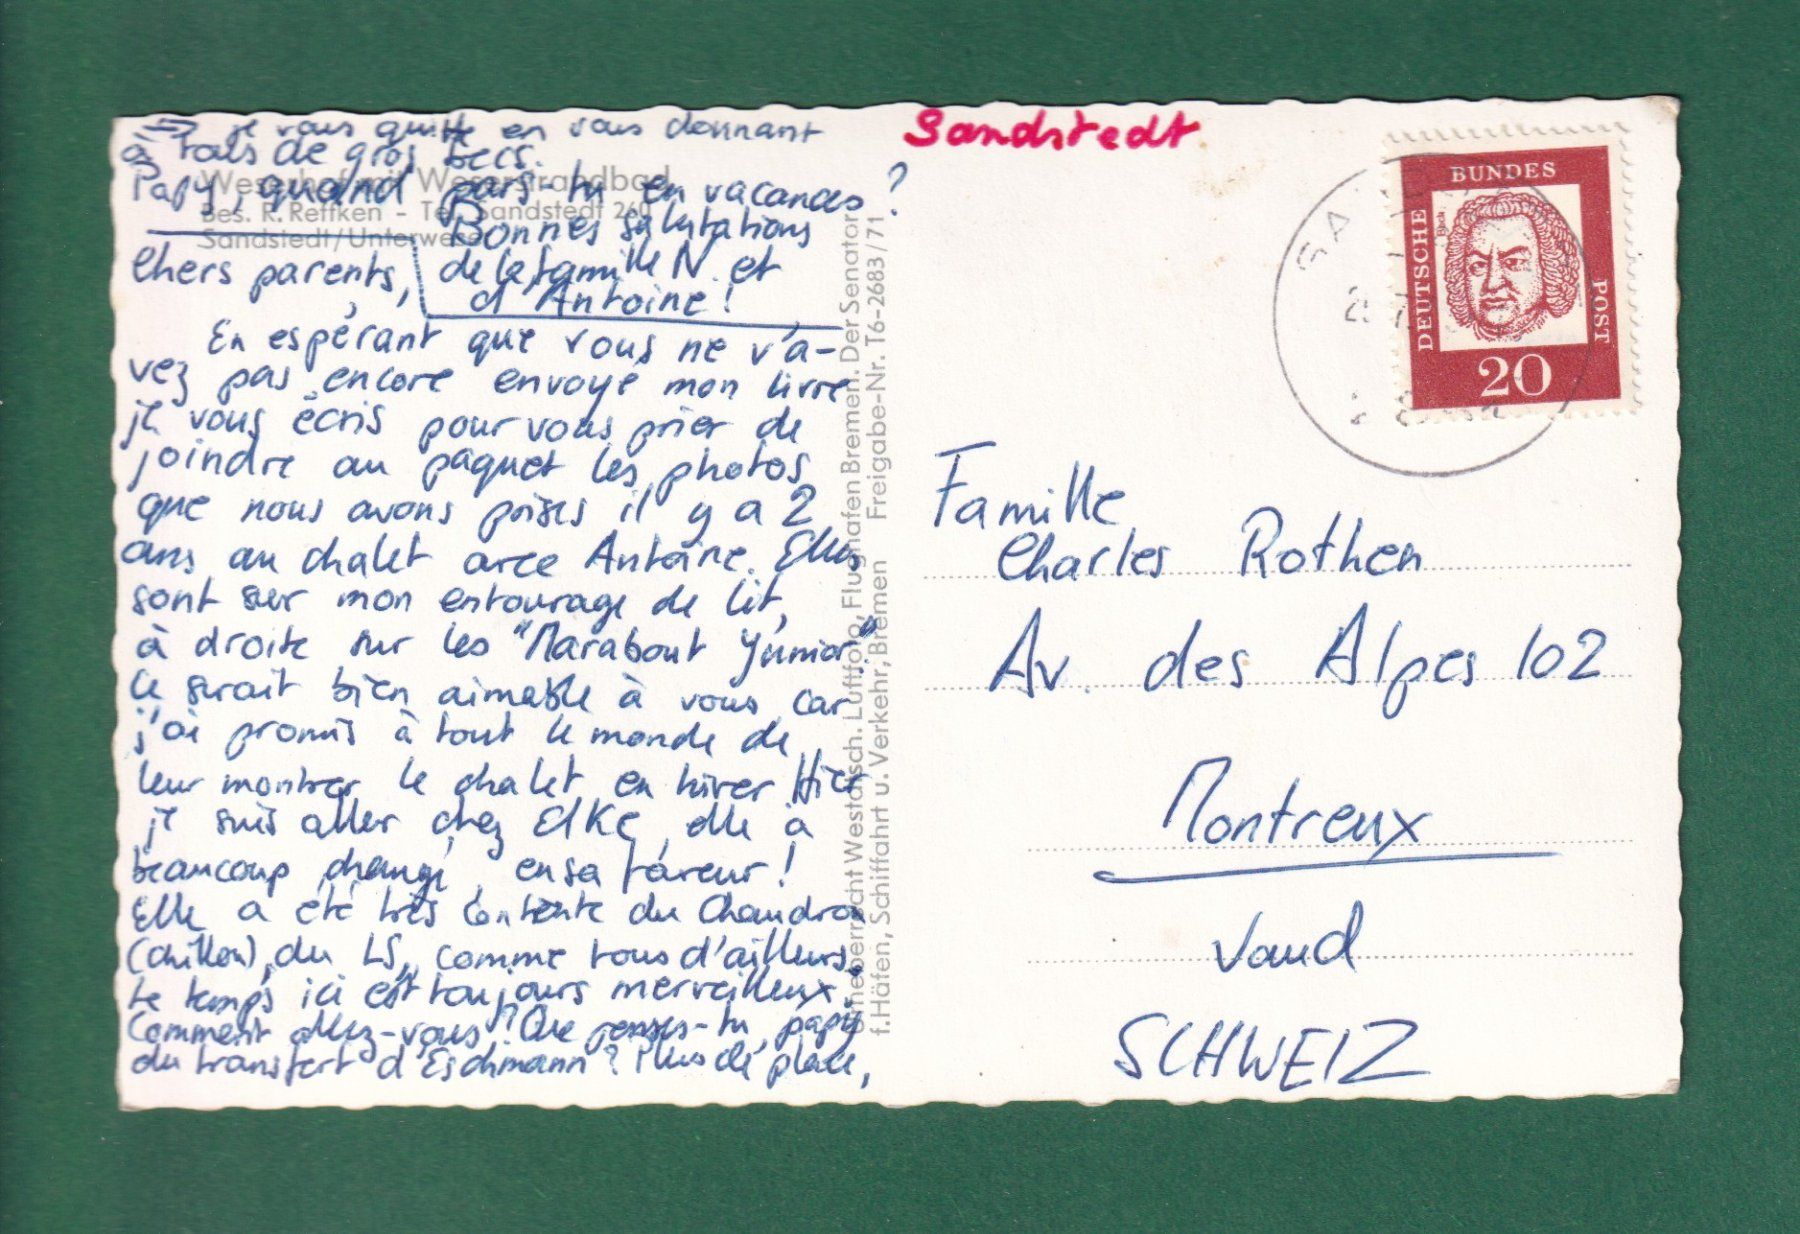 → je vous quitte en vous donnant
à tous de gros becs.
Papy, quand pars-tu en vacances ?
Bonnes salutations
de la famille N. et
d'Antoine !
Weserhof mit Weserstrandbad
Bes. R. Reffken - Tel. Sandstedt 260
Sandstedt/Unterweser
Chers parents,
En espérant que vous ne v'a-
vez pas encore envoyé mon livre
je vous écris pour vous prier de
joindre au paquet les photos
que nous avons prises il y a 2
ans au chalet avec Antoine. Elles
sont sur mon entourage de lit,
à droite sur les "Marabout Junior".
Ce serait bien aimable à vous car
j'ai promis à tout le monde de
leur montrer le chalet en hiver Hier
je suis aller chez Elke, elle a
beaucoup changé, en sa faveur !
Elle a été très contente du Chaudron
(chillon), du LS, comme tous d'ailleurs.
Le temps ici est toujours merveilleux.
Comment allez-vous ? Que penses-tu, papy
du transfert d'Eschmann ? Plus de place,
Urheberrecht Westdtsch. Luftfoto, Flughafen Bremen. Der Senator
f. Häfen, Schiffahrt u. Verkehr, Bremen Freigabe-Nr. T6-2683/71
Sandstedt
BUNDES
DEUTSCHE
POST
Bach
20
Famille
Charles Rothen
Av. des Alpes 102
Montreux
Vaud
SCHWEIZ